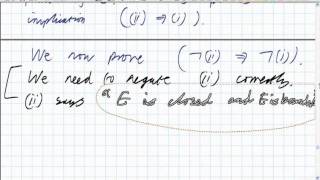 implication ((ii) ⇒ (i)).
We now prove (¬(ii) ⇒ ¬(i)).
We need to negate (ii) correctly.
(ii) says "E is closed and E is bounded